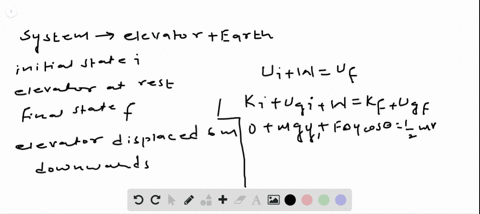 System → elevator + Earth
initial state i
elevator at rest
final state f
elevator displaced 6 m
downwards
Ui + W = Uf
Ki + Ugi + W = Kf + Ugf
0 + mgy, + FΔy cosθ = 1/2 mv